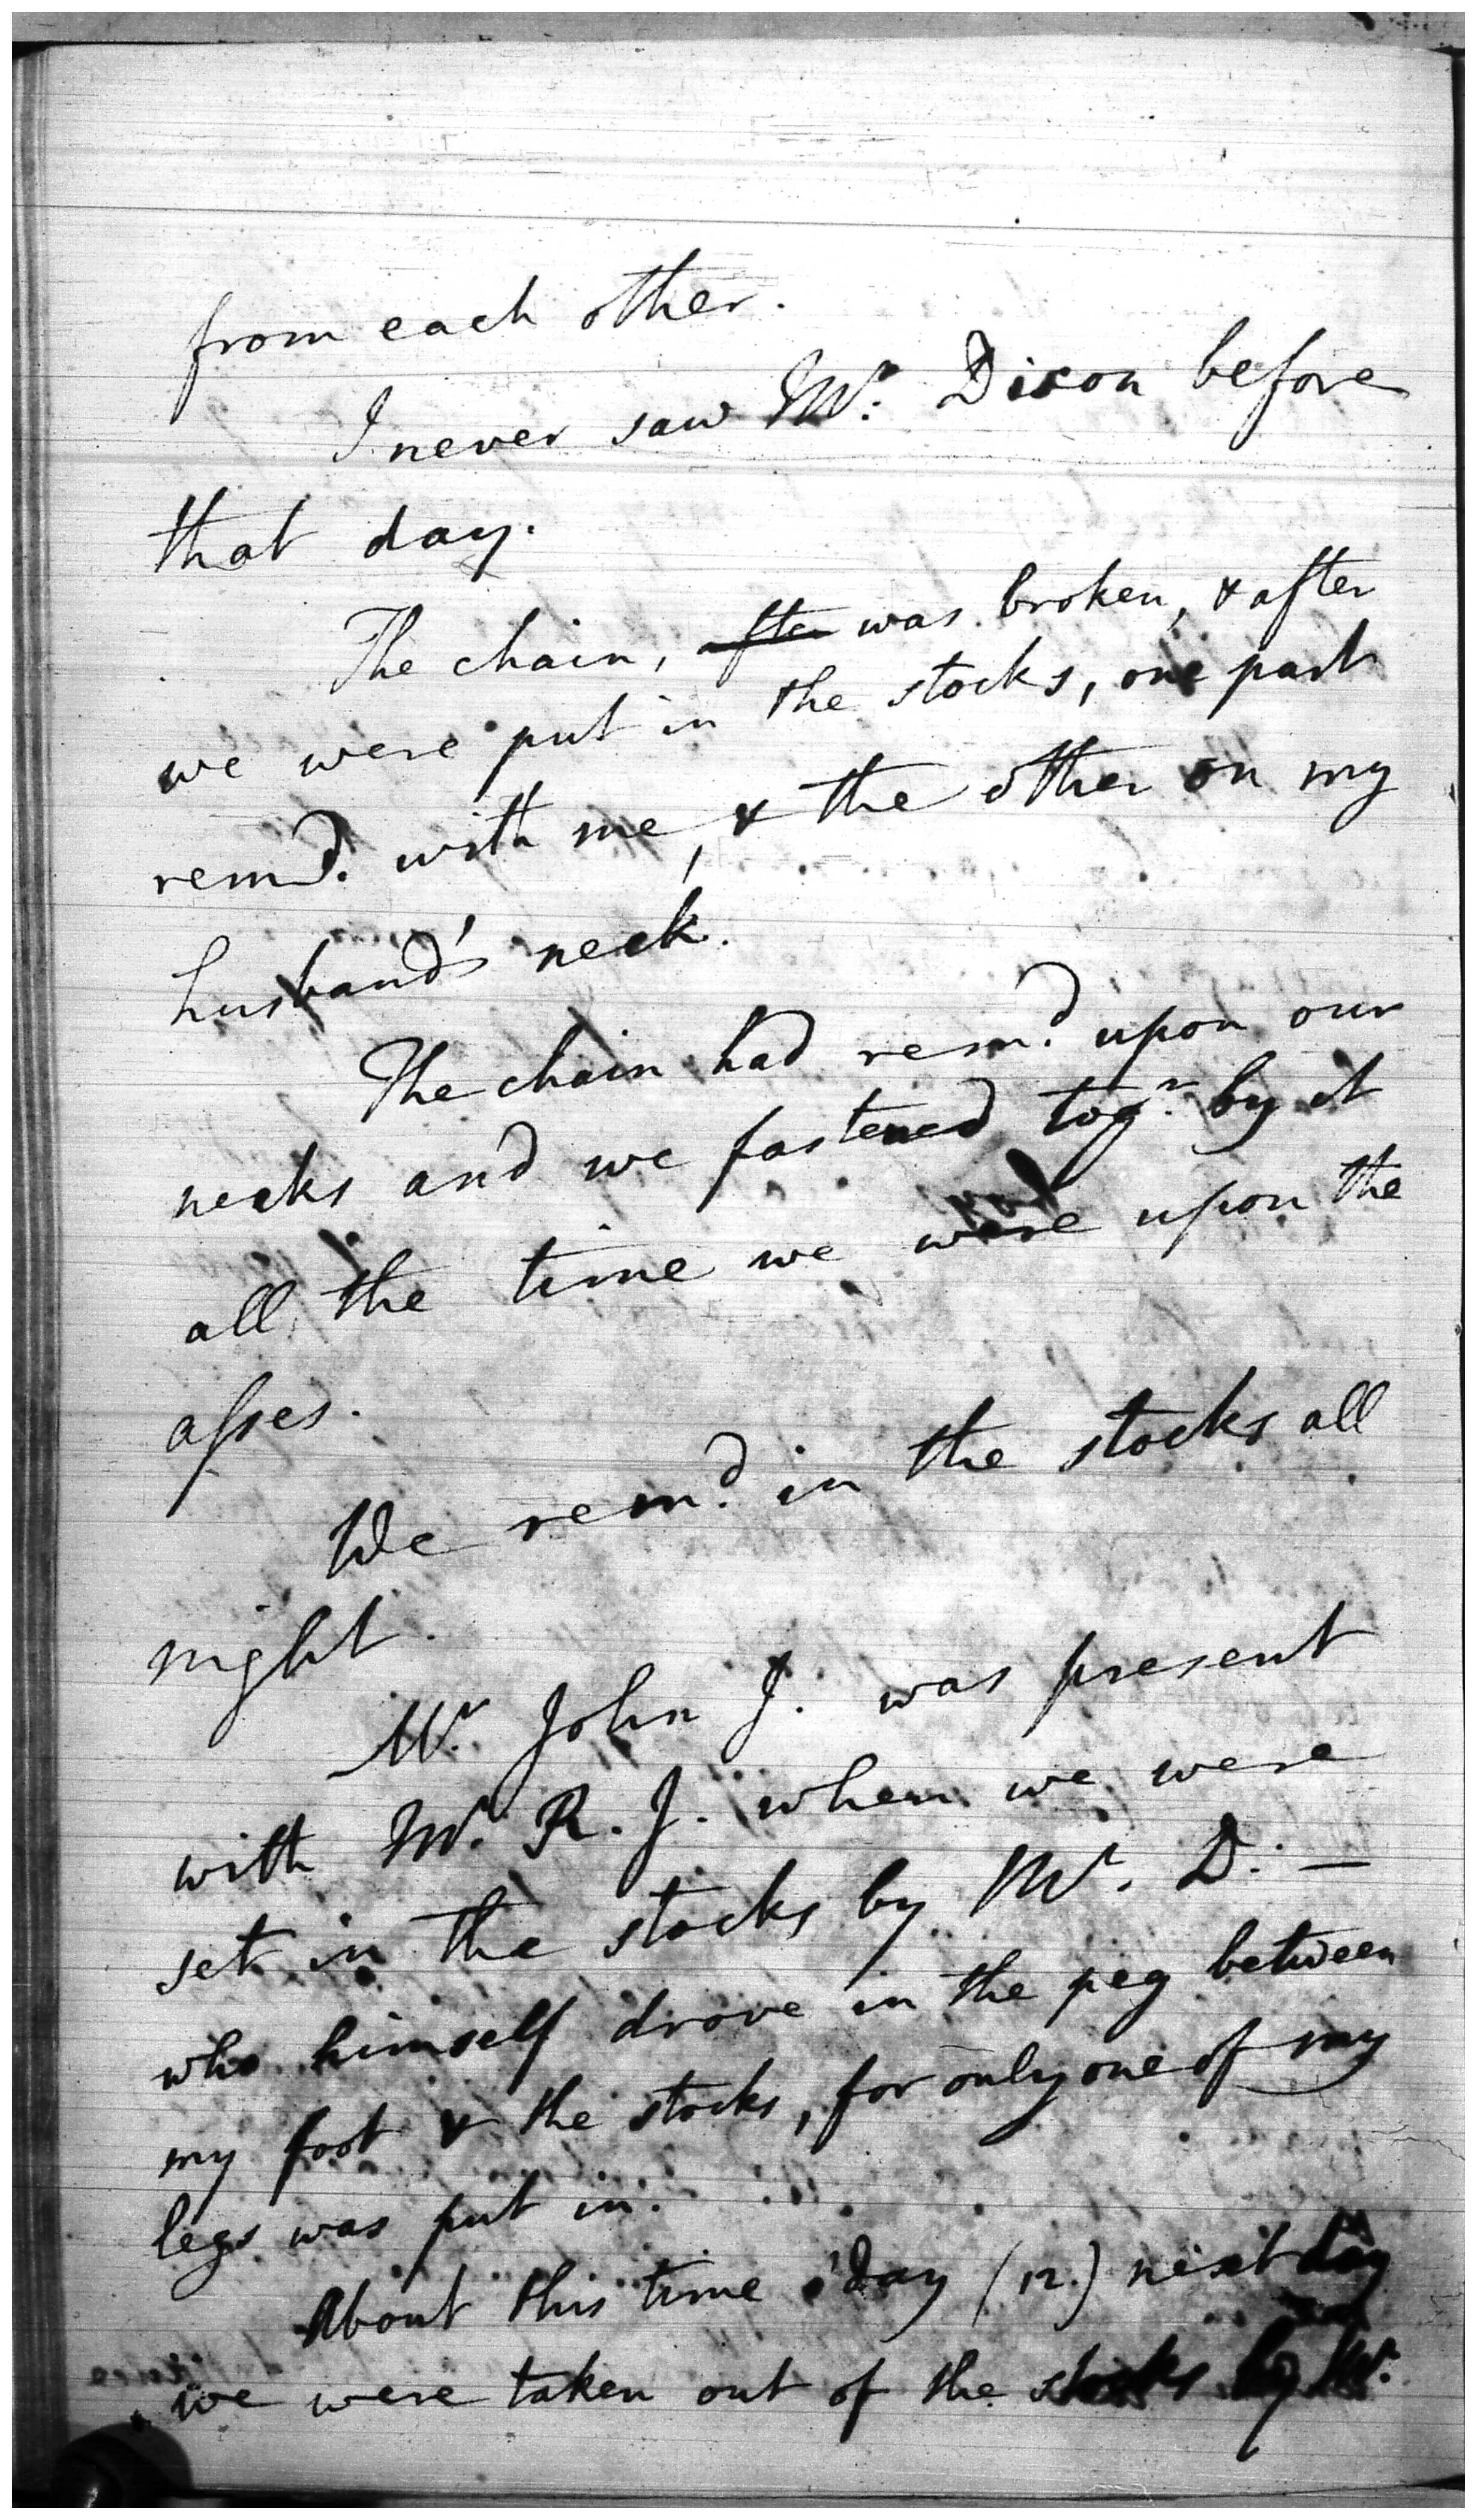 from each other.
I never saw Mr. Dixon before
that day.
The chain, after was broken, & after
we were put in the stocks, one part
remd. with me, & the other on my
husband's neck.
The chain had remd. upon our
necks and we fastened togr. by it
all the time we were upon the
asses.
We remd. in the stocks all
night.
Mr. John J. was present
with Mr. R. J. when we were
set in the stocks by Mr. D. —
who himself drove in the peg between
my foot & the stocks, for only one of my
legs was put in.
About this time o'day (12.) next day
we were taken out of the stocks by Mr.